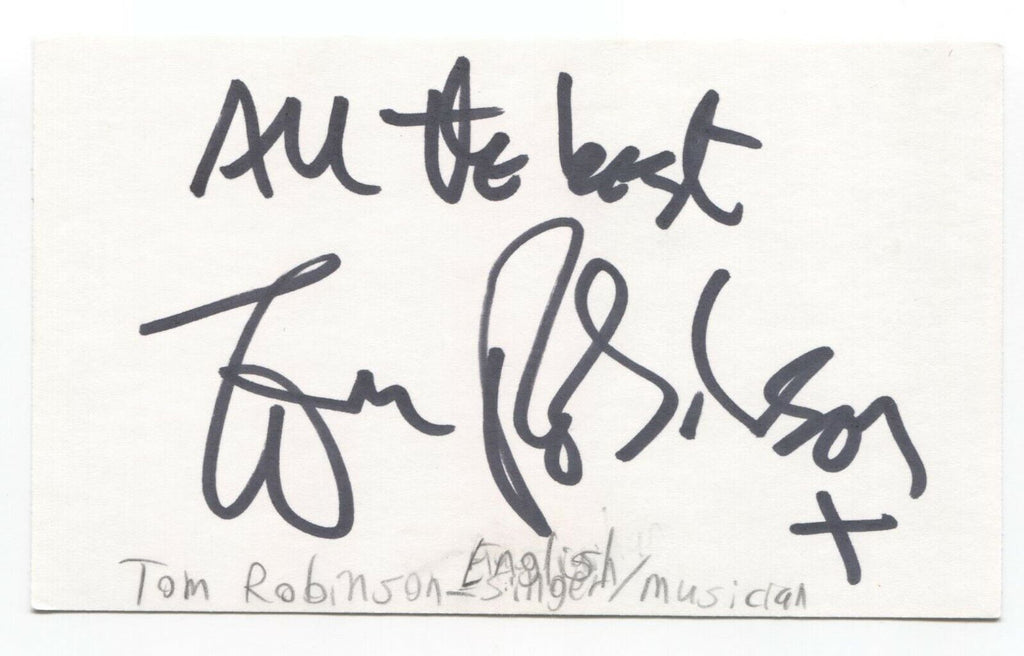 All the best
Tom Robinson
+
English
Tom Robinson-singer/musician